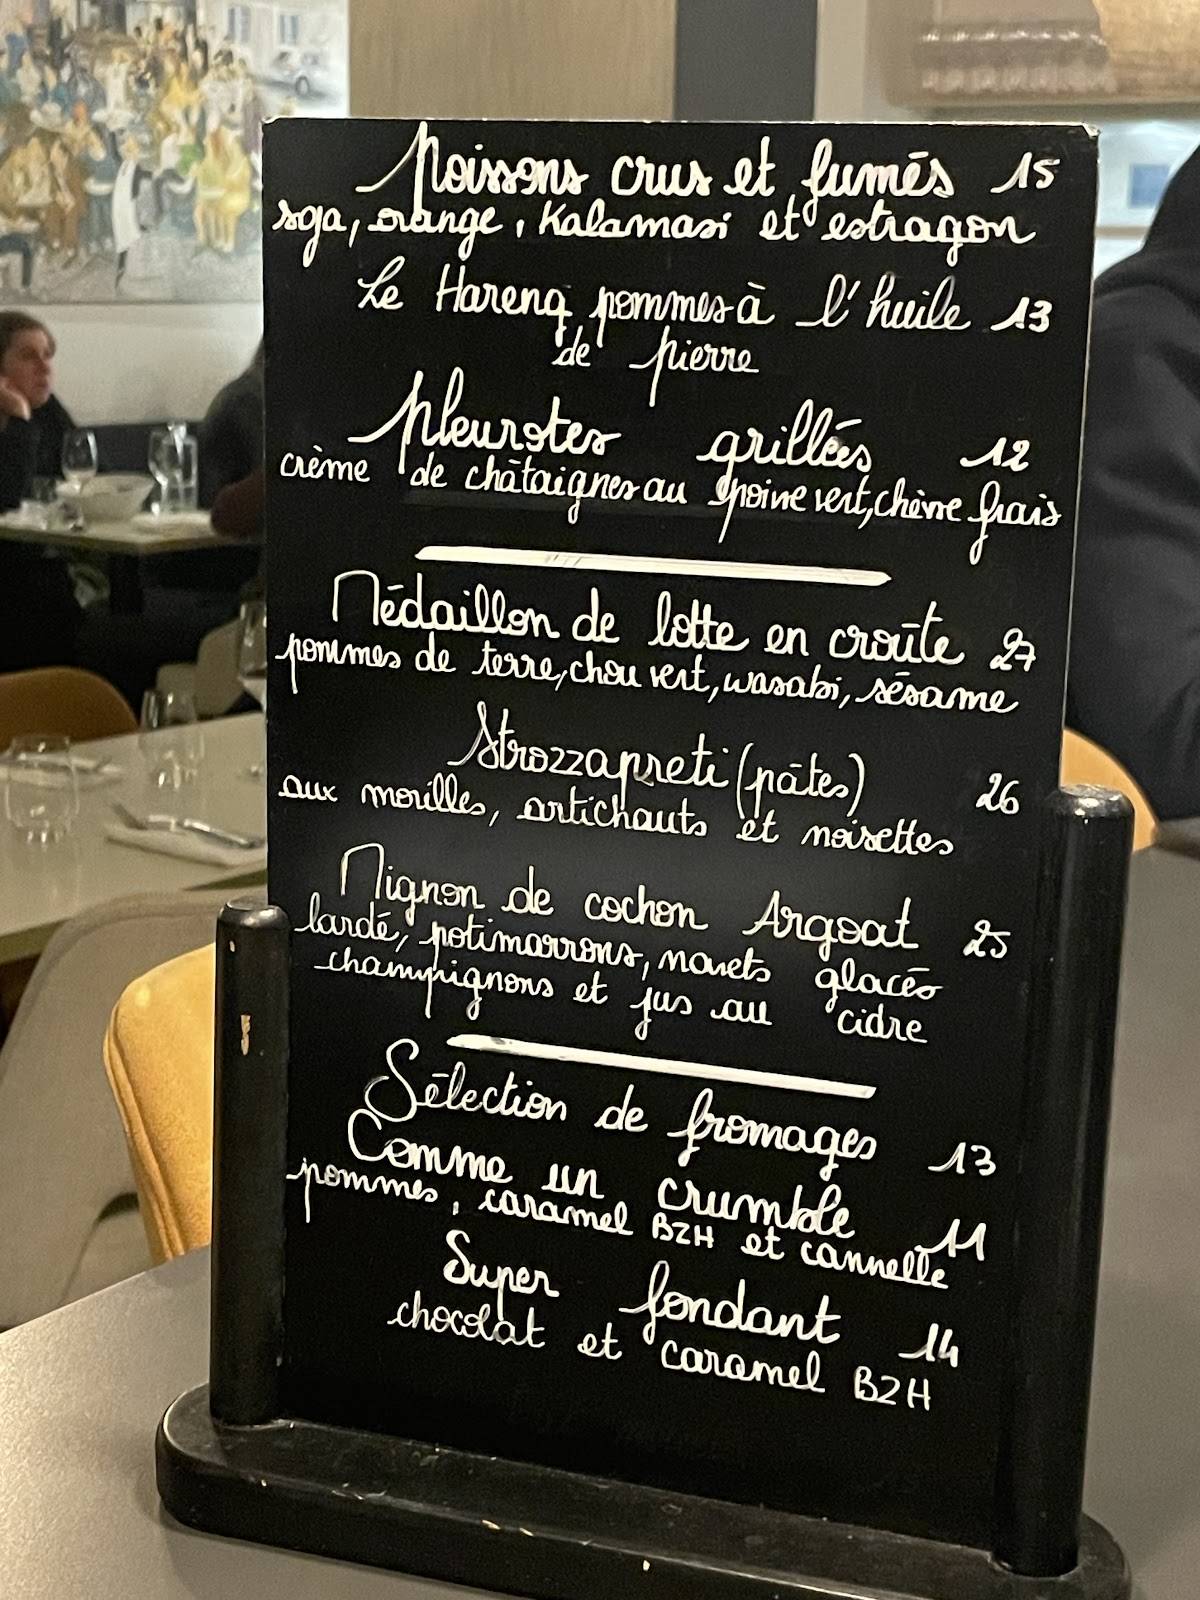 Poissons crus et fumés 15
soja, orange, Kalamasi et estragon
Le Hareng pommes à l'huile 13
de pierre
Pleurotes grillées 12
crème de châtaignes au poivre vert, chèvre frais
Médaillon de lotte en croûte 27
pommes de terre, chou vert, wasabi, sésame
Strozzapreti (pâtes) 26
aux morilles, artichauts et noisettes
Mignon de cochon Argoat 25
lardé, potimarrons, navets glacés
champignons et jus au cidre
Sélection de fromages 13
Comme un crumble 11
pommes, caramel BZH et cannelle
Super fondant 14
chocolat et caramel BZH